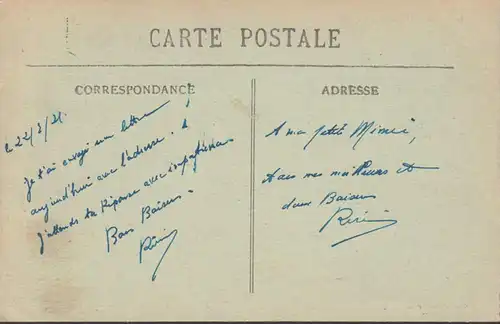 CARTE POSTALE
CORRESPONDANCE
ADRESSE
Le 22/2/21.
Je t'ai envoyé une lettre
aujourd'hui avec l'adresse.
J'attends ta Réponse avec impatience
Bons Baisers.
Riri
A ma petite Mimi,
tous mes meilleurs et
doux Baisers
Riri